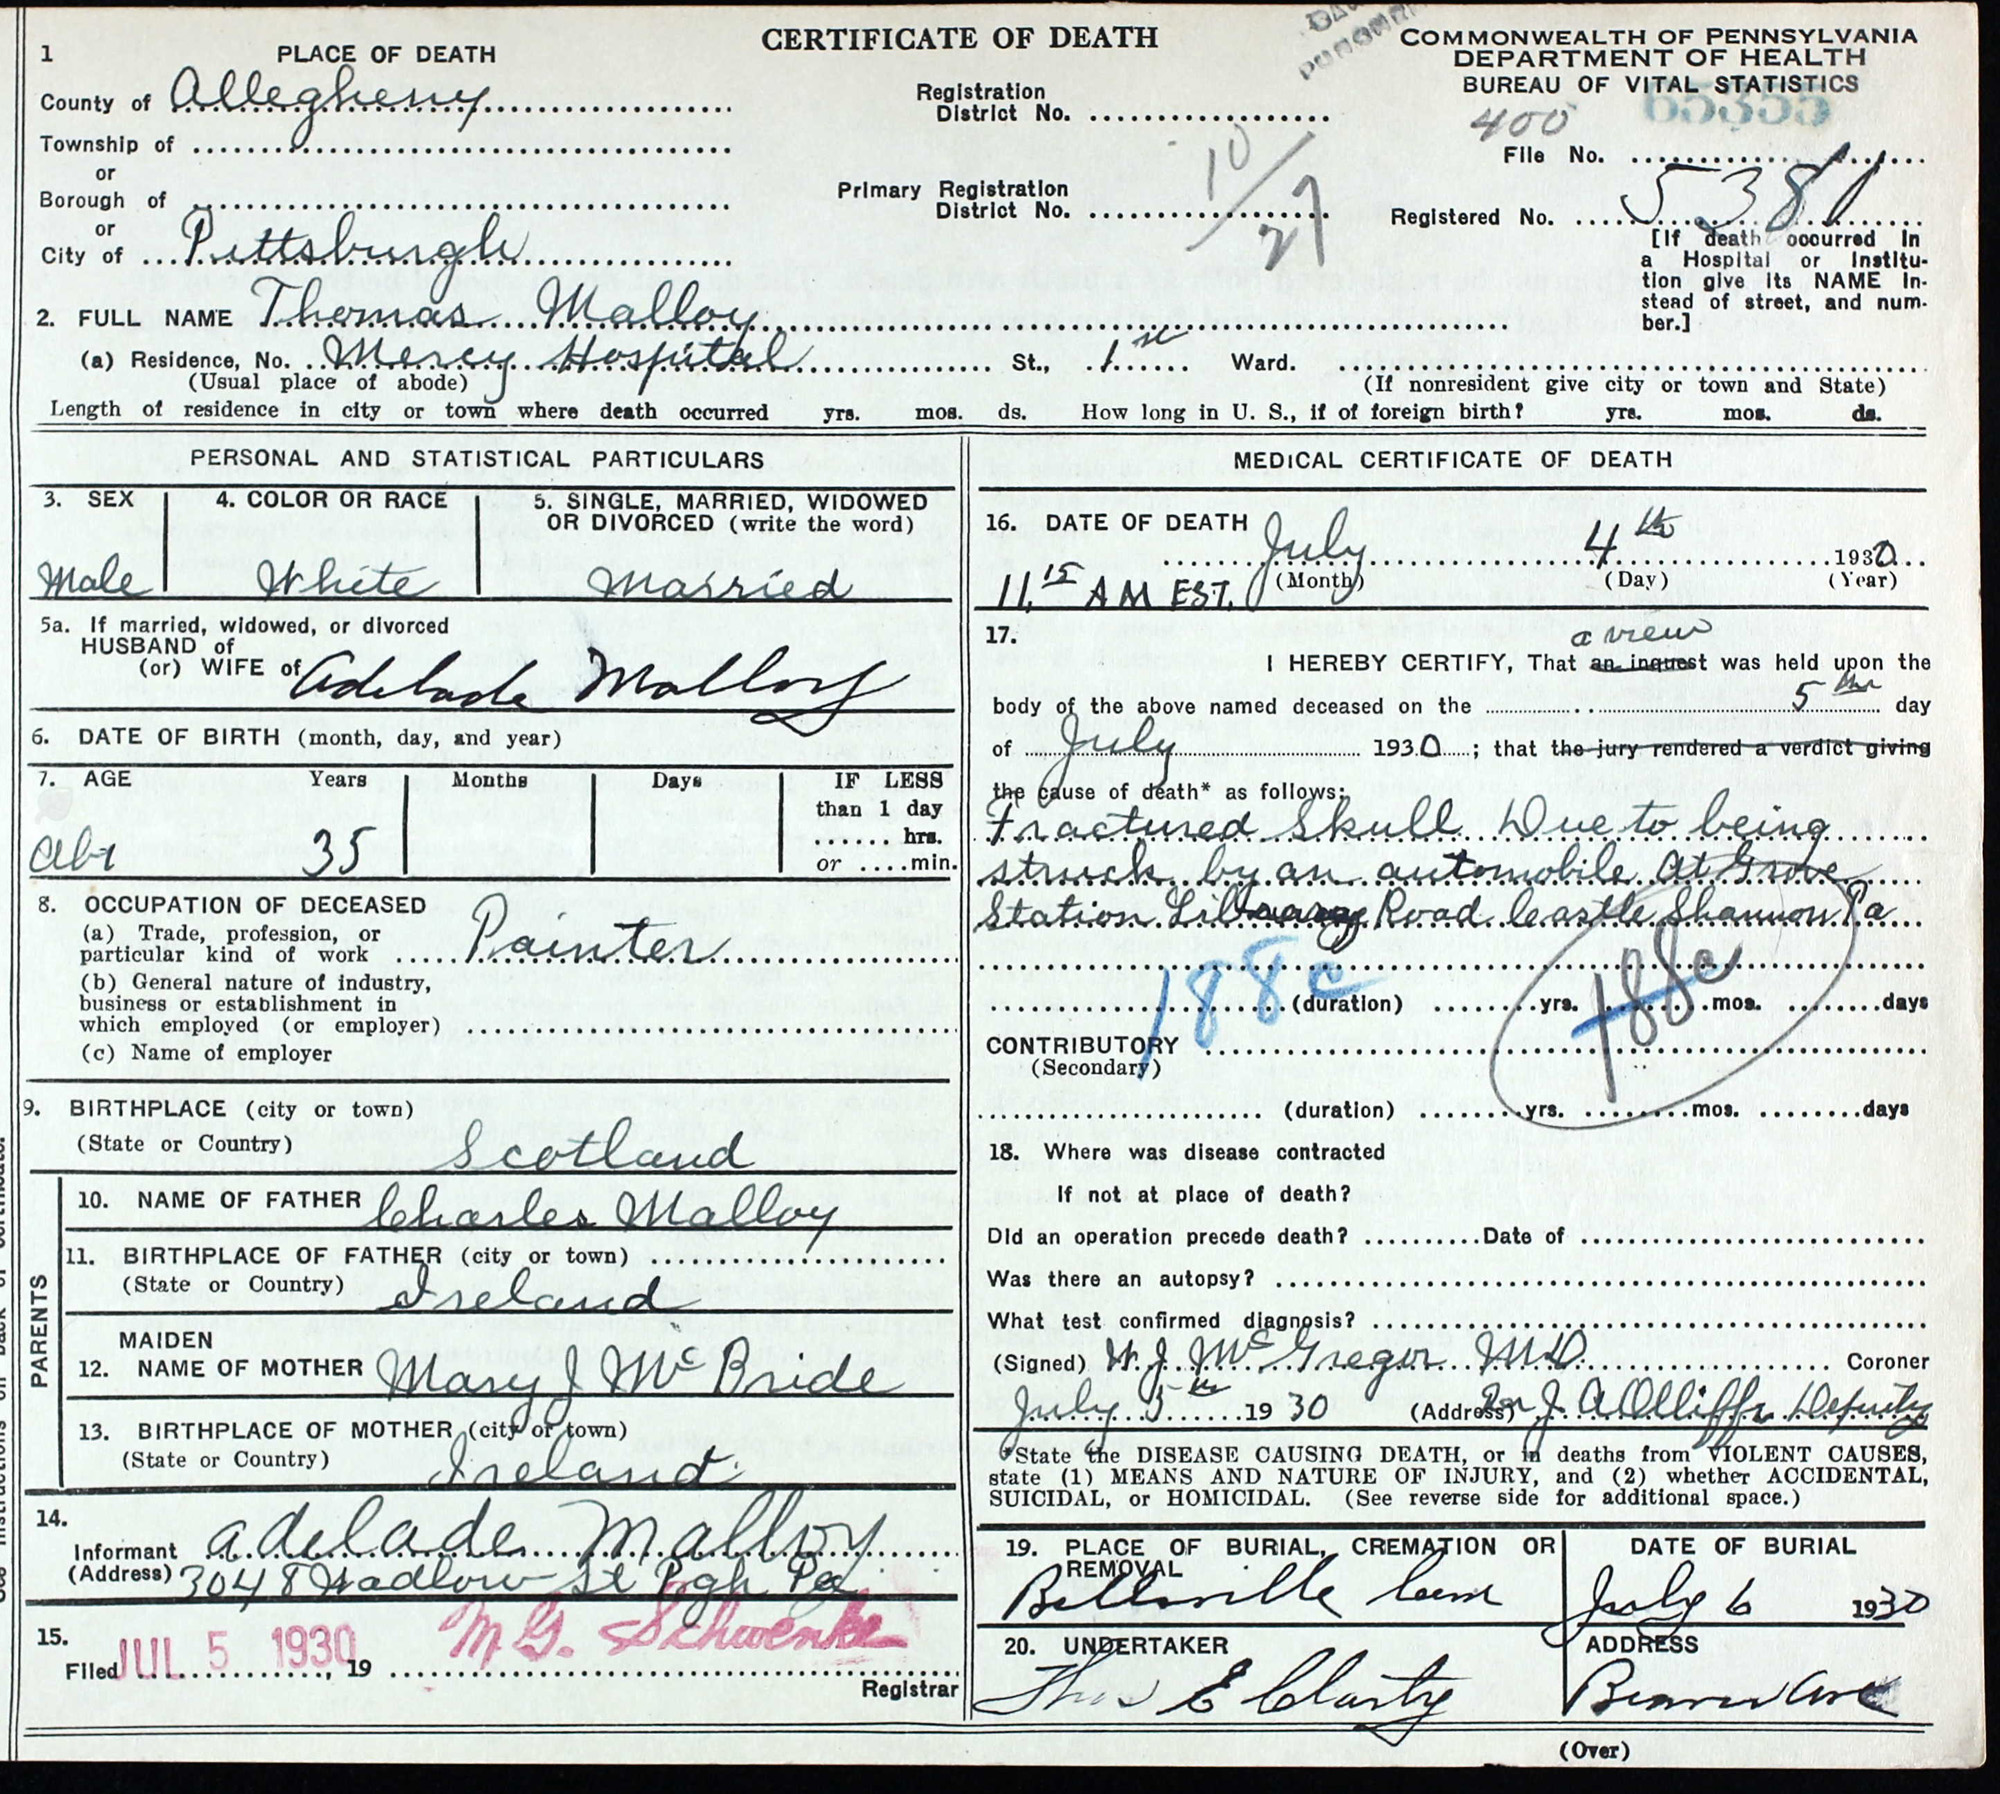 CERTIFICATE OF DEATH
COMMONWEALTH OF PENNSYLVANIA
DEPARTMENT OF HEALTH
BUREAU OF VITAL STATISTICS
1 PLACE OF DEATH
County of Allegheny
Township of
or
Borough of
or
City of Pittsburgh
Registration
District No.
Primary Registration
District No.
10/27
65355
400
File No.
Registered No. 5381
[If death occurred in
a Hospital or Institu-
tion give its NAME in-
stead of street, and num-
ber.]
2. FULL NAME Thomas Malloy
(a) Residence, No. Mercy Hospital St., 1st Ward.
(Usual place of abode) (If nonresident give city or town and State)
Length of residence in city or town where death occurred yrs. mos. ds. How long in U. S., if of foreign birth? yrs. mos. ds.
PERSONAL AND STATISTICAL PARTICULARS
3. SEX 4. COLOR OR RACE 5. SINGLE, MARRIED, WIDOWED
OR DIVORCED (write the word)
Male White Married
5a. If married, widowed, or divorced
HUSBAND of
(or) WIFE of Adelade Malloy
6. DATE OF BIRTH (month, day, and year)
7. AGE Years Months Days IF LESS
than 1 day
.... hrs.
or ....min.
abt 35
8. OCCUPATION OF DECEASED
(a) Trade, profession, or
particular kind of work Painter
(b) General nature of industry,
business or establishment in
which employed (or employer)
(c) Name of employer
9. BIRTHPLACE (city or town)
(State or Country) Scotland
PARENTS
10. NAME OF FATHER Charles Malloy
11. BIRTHPLACE OF FATHER (city or town)
(State or Country) Ireland
MAIDEN
12. NAME OF MOTHER Mary J McBride
13. BIRTHPLACE OF MOTHER (city or town)
(State or Country) Ireland
14.
Informant Adelade Malloy
(Address) 3048 Wadlow St Pgh Pa
15.
Filed JUL 5 1930, 19 M G. Schwenke
Registrar
MEDICAL CERTIFICATE OF DEATH
16. DATE OF DEATH July 4th 1930
(Month) (Day) (Year)
11.15 AM EST.
17. a view
I HEREBY CERTIFY, That an inquest was held upon the
body of the above named deceased on the 5th day
of July 1930; that the jury rendered a verdict giving
the cause of death* as follows:
Fractured Skull Due to being
struck by an automobile At Grove
Station Library Road Castle Shannon Pa
188c 188c
(duration) yrs. mos. days
CONTRIBUTORY
(Secondary)
(duration) yrs. mos. days
18. Where was disease contracted
If not at place of death?
Did an operation precede death? Date of
Was there an autopsy?
What test confirmed diagnosis?
(Signed) W. J. McGregor MD. Coroner
July 5th 1930 (Address) Per J. A Olliffe Deputy
*State the DISEASE CAUSING DEATH, or in deaths from VIOLENT CAUSES,
state (1) MEANS AND NATURE OF INJURY, and (2) whether ACCIDENTAL,
SUICIDAL, or HOMICIDAL. (See reverse side for additional space.)
19. PLACE OF BURIAL, CREMATION OR
REMOVAL
DATE OF BURIAL
Cem July 6 1930
20. UNDERTAKER ADDRESS
Thos E Clarty Beaver Ave
(Over)